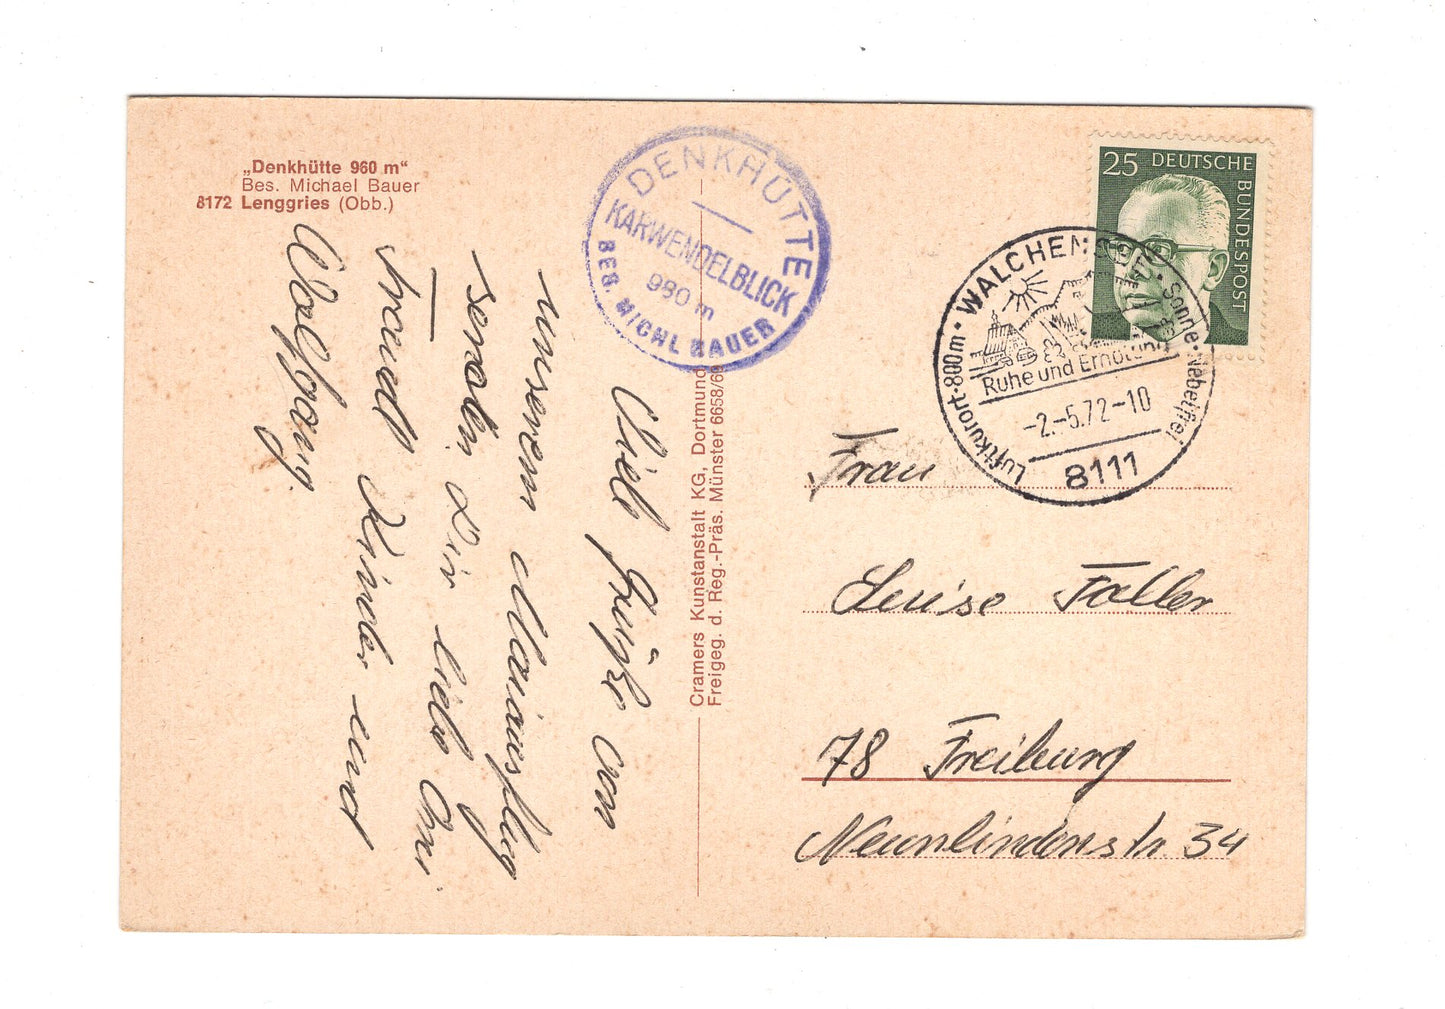 „Denkhütte 960 m“
Bes. Michael Bauer
8172 Lenggries (Obb.)
DENKHÜTTE
KARWENDELBLICK
980 m
BES. MICHL BAUER
Viele Grüße von
unserem Maiausflug
senden Dir liebe Omi
Traudl Kinder und
Wolfgang.
Cramers Kunstanstalt KG, Dortmund
Freigeg. d. Reg.-Präs. Münster 6658/69
25 DEUTSCHE
BUNDESPOST
Luftkurort · 800m · WALCHENSEE
Sonne · Nebelfrei
Ruhe und Erholung
-2.-5.72-10
8111
Frau
Luise Faller
78 Freiburg
Neunlindenstr 34